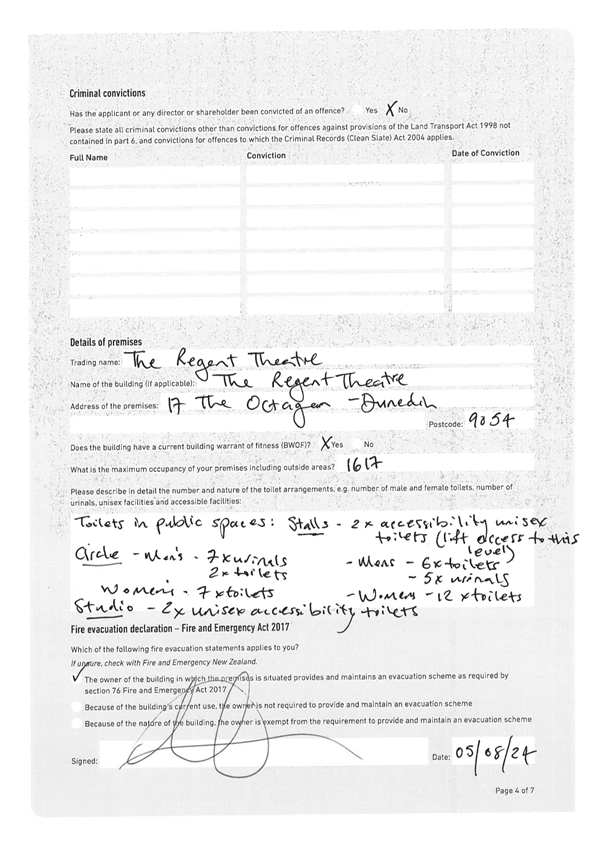 Criminal convictions
Has the applicant or any director or shareholder been convicted of an offence? Yes X No
Please state all criminal convictions other than convictions for offences against provisions of the Land Transport Act 1998 not
contained in part 6, and convictions for offences to which the Criminal Records (Clean Slate) Act 2004 applies.
Full Name Conviction Date of Conviction
Details of premises
Trading name: The Regent Theatre
Name of the building (if applicable): The Regent Theatre
Address of the premises: 17 The Octagon - Dunedin
Postcode: 9054
Does the building have a current building warrant of fitness (BWOF)? X Yes No
What is the maximum occupancy of your premises including outside areas? 1617
Please describe in detail the number and nature of the toilet arrangements, e.g. number of male and female toilets, number of
urinals, unisex facilities and accessible facilities:
Toilets in public spaces: Stalls - 2x accessibility unisex
toilets (lift access to this
level)
Circle - Men's - 7x urinals - Mens - 6x toilets
2x toilets - 5x urinals
Women's - 7x toilets - Women's - 12x toilets
Studio - 2x unisex accessibility toilets
Fire evacuation declaration – Fire and Emergency Act 2017
Which of the following fire evacuation statements applies to you?
If unsure, check with Fire and Emergency New Zealand.
✓ The owner of the building in which the premises is situated provides and maintains an evacuation scheme as required by
section 76 Fire and Emergency Act 2017
Because of the building's current use, the owner is not required to provide and maintain an evacuation scheme
Because of the nature of the building, the owner is exempt from the requirement to provide and maintain an evacuation scheme
Signed: Date: 05/08/24
Page 4 of 7